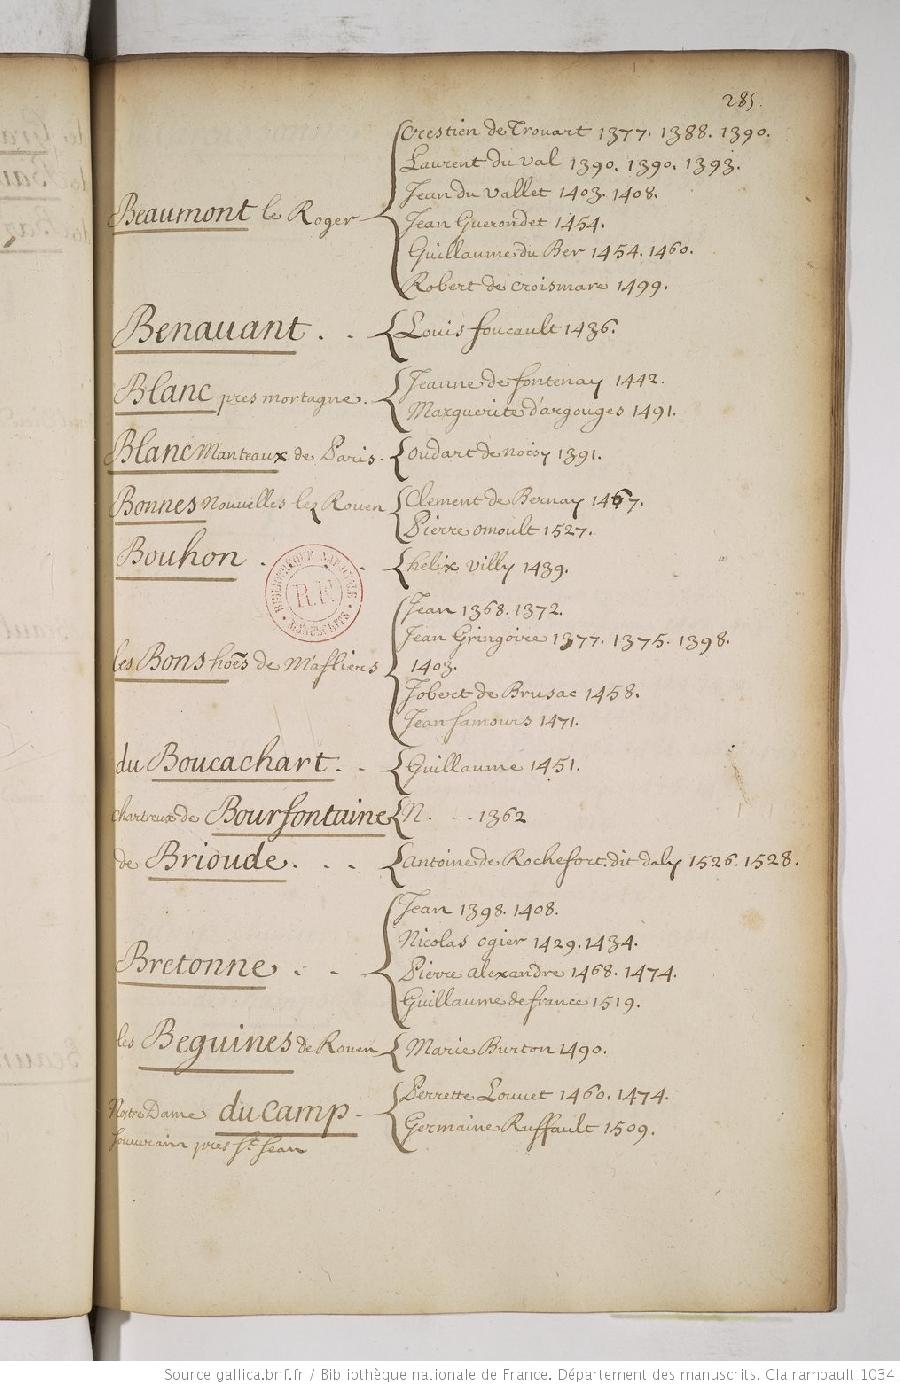 285.
Crestien de Trouart 1377. 1388. 1390.
Laurent du val 1390. 1390. 1393.
Jean du vallet 1403. 1408.
Beaumont le Roger
Jean Guerondet 1454.
Guillaume du Ber 1454. 1460.
Robert de croismare 1499.
Benauant . . Louis foucault 1436.
Blanc pres mortagne. Jeanne de fontenay 1442.
Marguerite d'argouges 1491.
Blanc Manteaux de Paris. oudart de noisy 1391.
Bonnes nouvelles lez Rouen Clement de Bernay 1467.
Pierre omoult 1527.
Bouhon . . helix villy 1439.
Jean 1368. 1372.
Jean Gringoire 1377. 1375. 1398.
les Bons hoes de Maflieres 1403.
Jobert de Brusac 1458.
Jean famours 1471.
du Boucachart. . Guillaume 1451.
chartreux de Bourfontaine N. . . 1362
de Brioude. . . antoine de Rochefort dit daly 1526. 1528.
Jean 1398. 1408.
Nicolas ogier 1429. 1434.
Bretonne . . Pierre alexandre 1468. 1474.
Guillaume de france 1519.
les Beguines de Rouen Marie Burton 1490.
Perrette Louuet 1460. 1474.
Notre Dame du camp - Germaine Ruffault 1509.
souurain pres St. Jean
BIBLIOTHEQUE NATIONALE
R.F.
MANUSCRITS
Source gallica.bnf.fr / Bibliothèque nationale de France. Département des manuscrits. Clairambault 1034